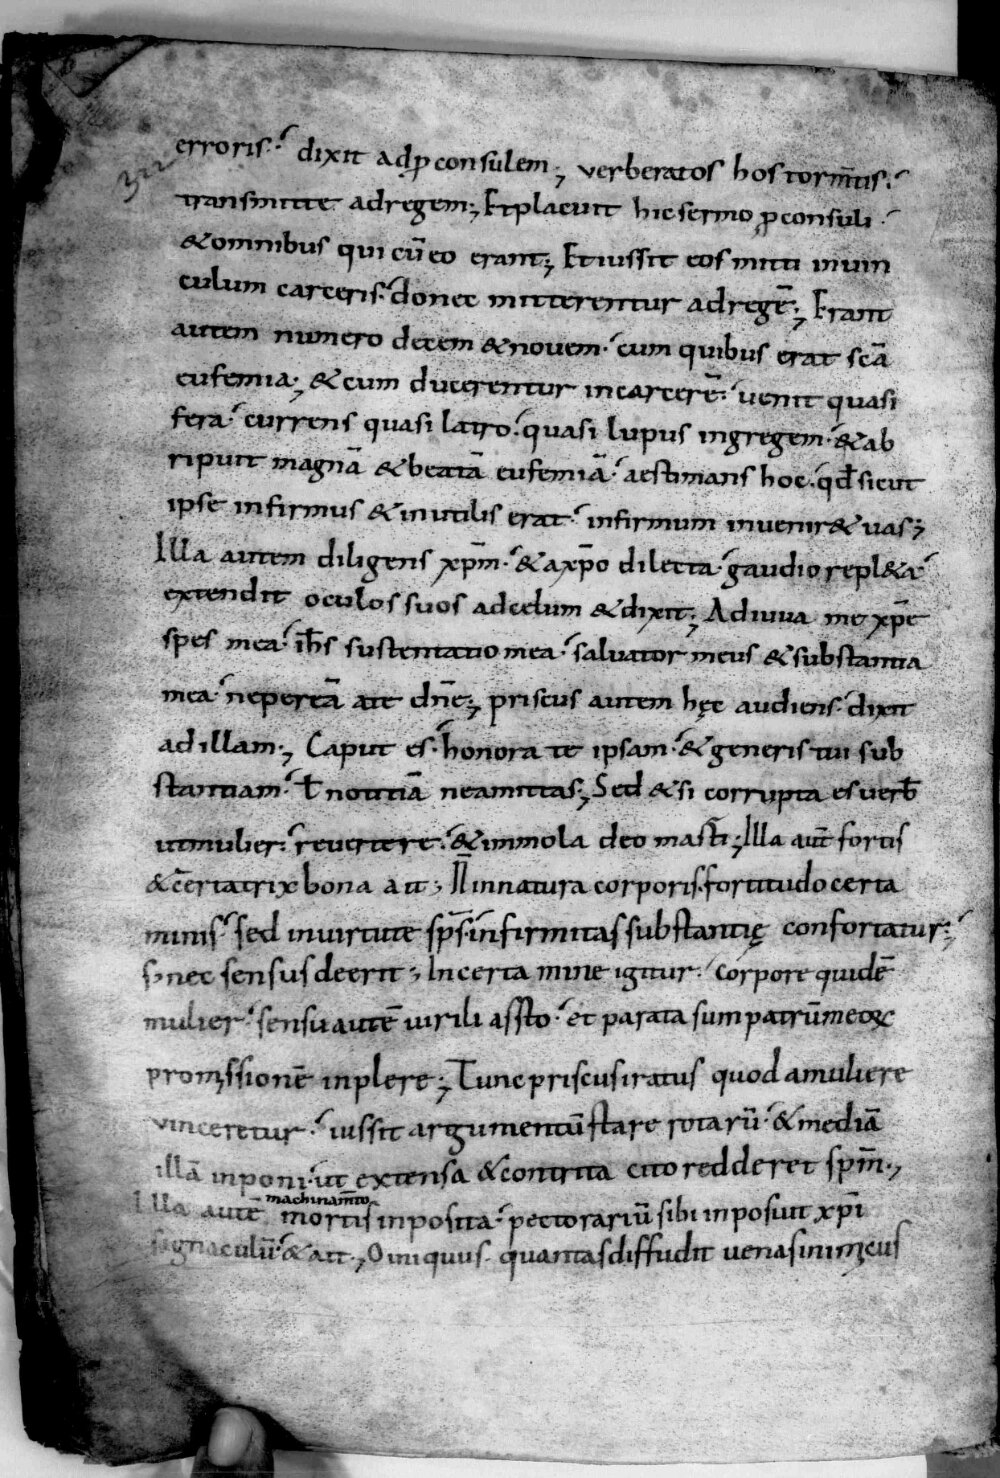 erroris·' dixit adꝓconsulem; verberatos hos torm̅tis·'
transmitte adregem; Etplacuit hic sermo ꝓconsuli·'
&omnibus qui cū eo erant; Etiussit eos mitti inuin
culum carceris·' donec mitterentur adregē·; Erant
autem numero decem &novem·' cum quibus erat sc̄a
eufemia; &cum ducerentur incarcerē·' uenit quasi
fera·' currens quasi latro·' quasi lupus ingregem·' &ab
ripuit magnā &beatā eufemiā·' aestimans hoc·' qd̄ sicut
ipse infirmus &inutilis erat·' infirmum inuenir& uas;
Illa autem diligens xp̄m·' &axp̄o dilecta·' gaudio repl&a·'
extendit oculos suos adcelum &dixit; Adiuua me xp̄e
spes mea·' ih̄s sustentatio mea·' saluator meus &substantia
mea·' nepereā ate dn̄e; priscus autem hęc audiens·' dixit
adillam·; Caput es·' honora te ipsam·' &generis tui sub
stantiam·' ł notitiā neamittas; Sed &si corrupta es uerb̄
utmulier·' revertere·' &immola deo masti; Illa aut̄ fortis
&certatrix bona ait; N̄ innatura corporis·fortitudo certa
minis·' sed inuirtute sp̄s·' infirmitas substantię confortatur·;'
s; nec sensus deerit; Incerta mine igitur·' corpore quidē
mulier·' sensu autē uirili assto·' et parata sum patrū meoꝝ
promissionē inplere; Tunc priscus iratus quod amuliere
vinceretur·' iussit argumentū stare rotarū·' &mediā
illā inponi·' ut extensa &contrita cito redderet sp̄m·;
machinam̄to
Illa autē mortis inposita·' pectorariū sibi inposuit xp̄i
signaculū·' &ait·; O iniquus· quantas diffudit uenas inimicus